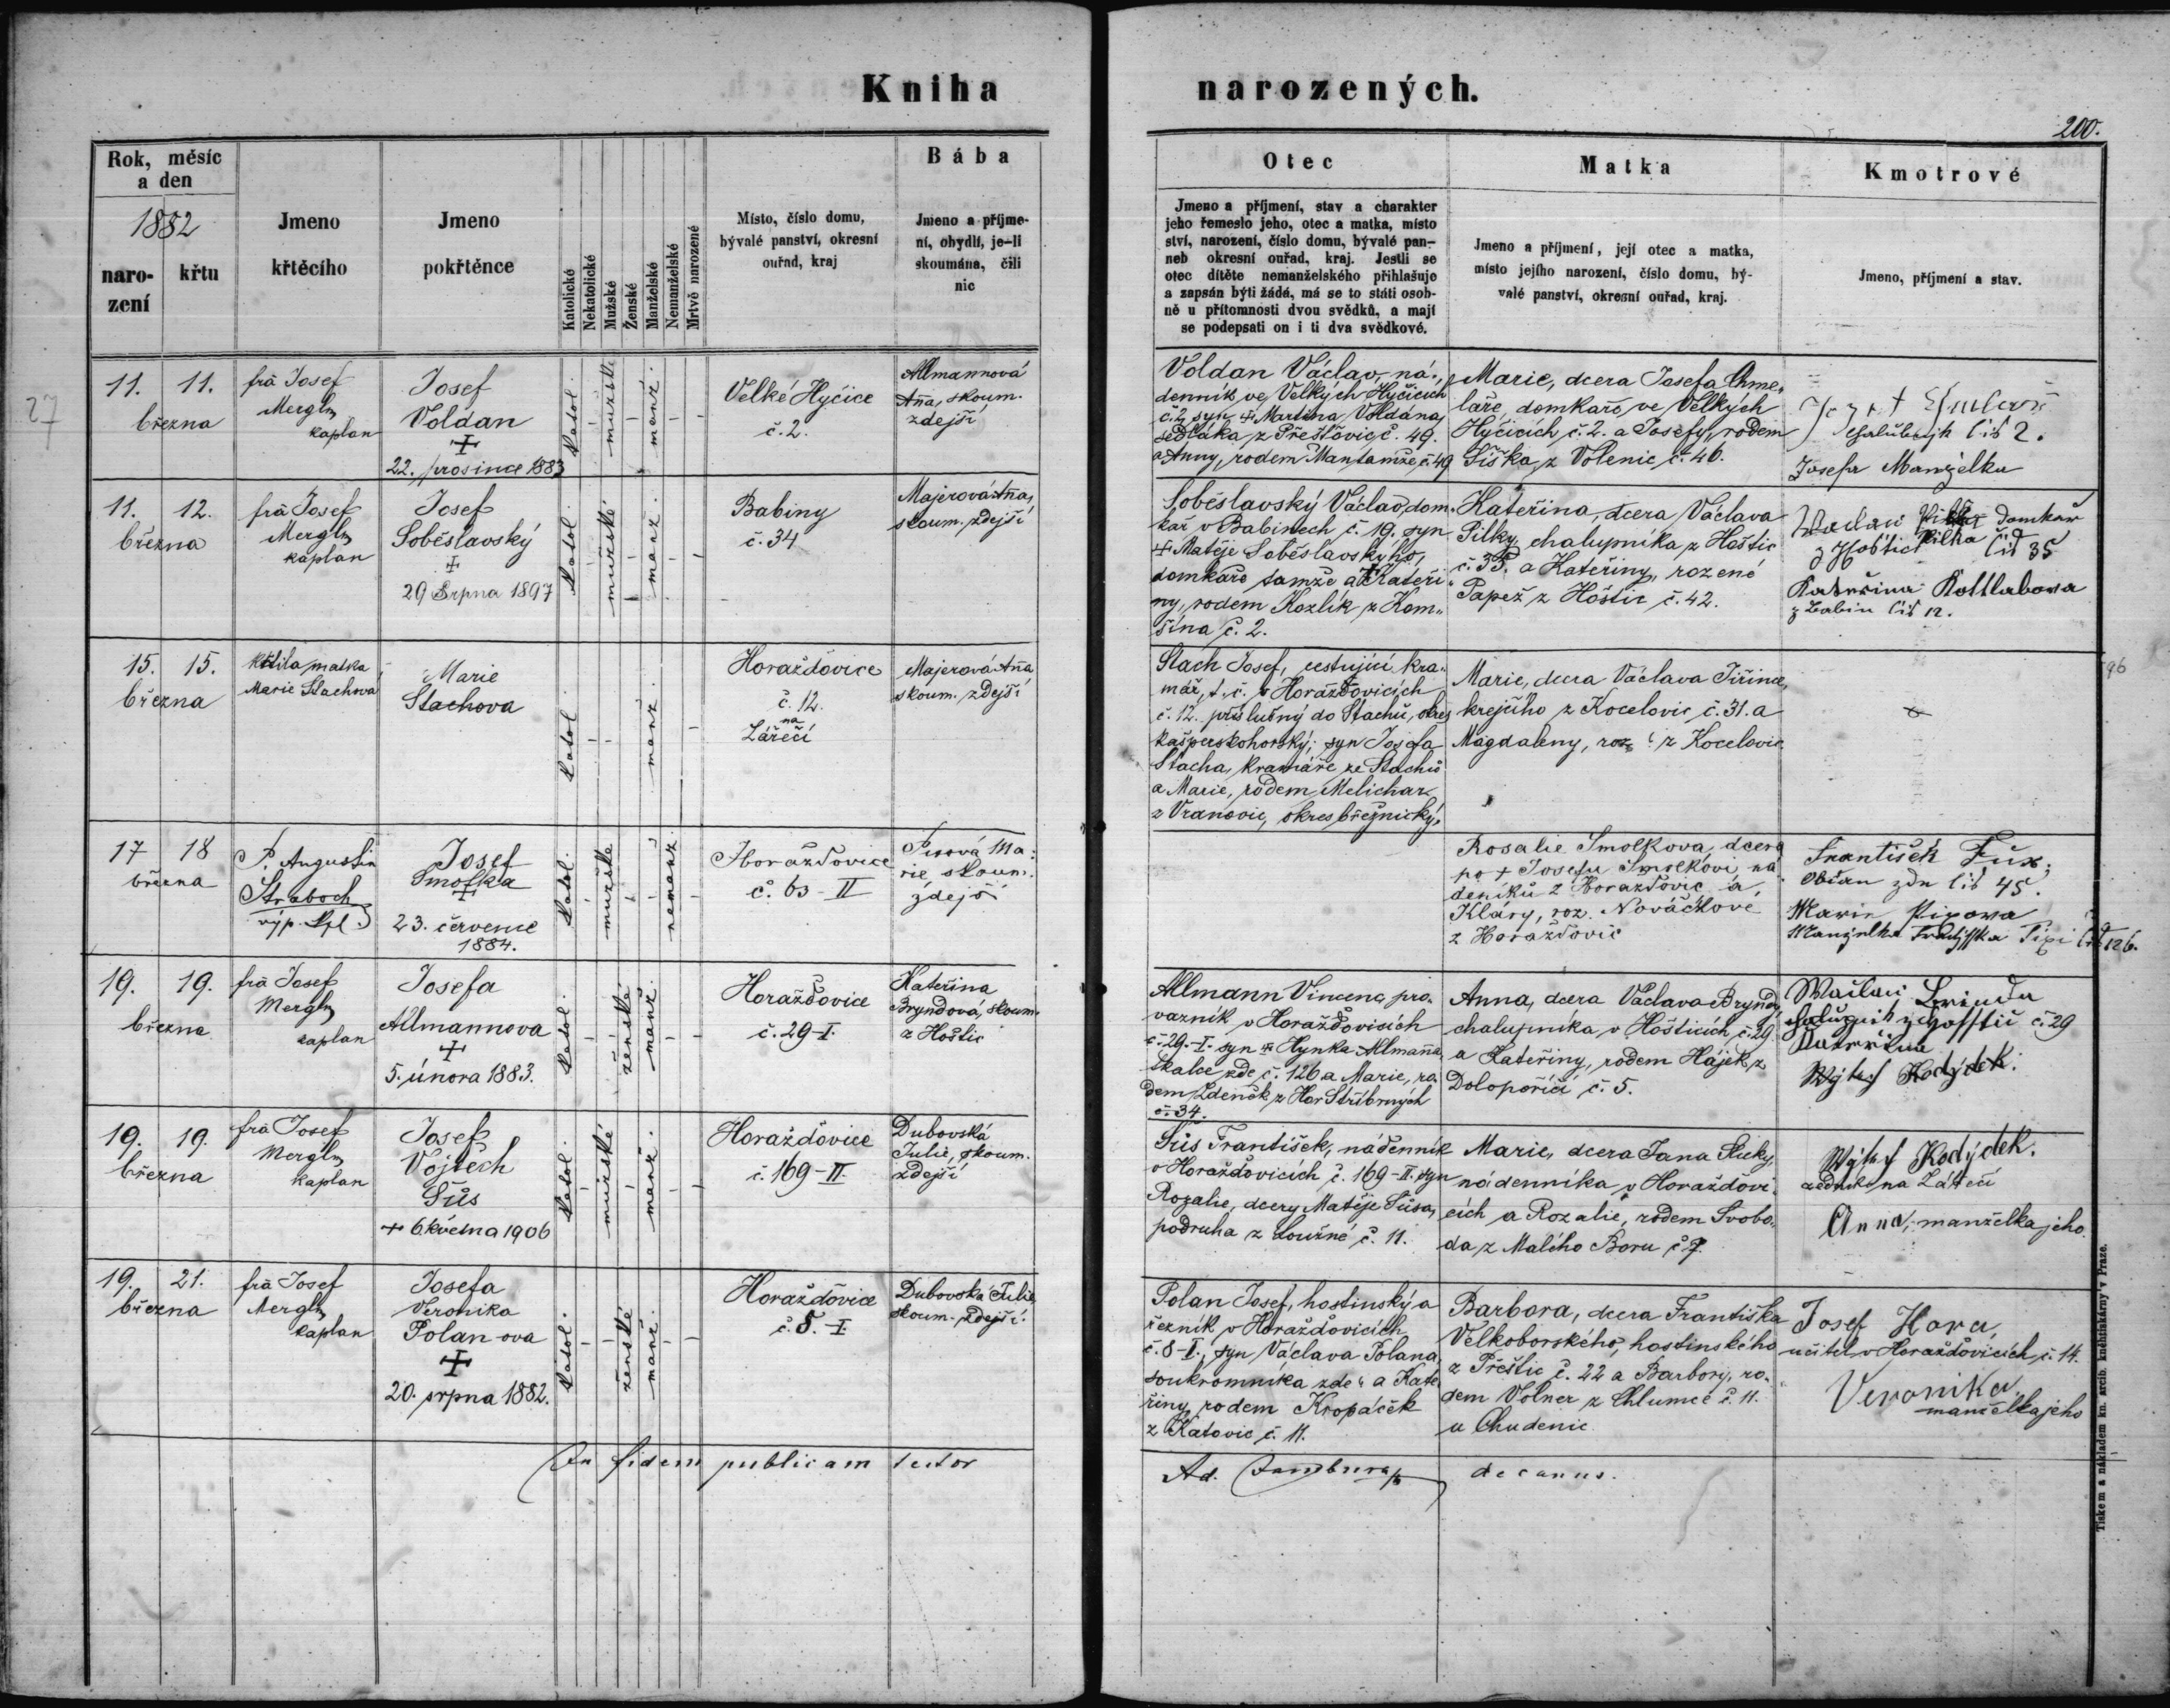 Kniha narozených.
200.
Rok, měsíc
a den
1882
naro-
zení
křtu
Jmeno
křtěcího
Jmeno
pokřtěnce
Katolické
Nekatolické
Mužské
Ženské
Manželské
Nemanželské
Mrtvě narozené
Místo, číslo domu,
bývalé panství, okresní
ouřad, kraj
Bába
Jmeno a příjme-
ní, obydlí, je-li
skoumána, čili
nic
Otec
Jmeno a příjmení, stav a charakter
jeho řemeslo jeho, otec a matka, místo
ství, narození, číslo domu, bývalé pan-
neb okresní ouřad, kraj. Jestli se
otec dítěte nemanželského přihlašuje
a zapsán býti žádá, má se to státi osob-
ně u přítomnosti dvou svědků, a mají
se podepsati on i ti dva svědkové.
Matka
Jmeno a příjmení, její otec a matka,
místo jejího narození, číslo domu, bý-
valé panství, okresní ouřad, kraj.
Kmotrové
Jmeno, příjmení a stav.
27
11. 11.
března
frà Josef
Mergl
kaplan
Josef
Voldan
+
22. prosince 1883
Katol.
mužské
manž.
Velké Hyčice
č. 2.
Allmannová
Aña, skoum.
zdejší
Voldan Václav, ná-
denník ve Velkých Hyčicích
č. 2, syn + Martina Voldana,
sedláka z Přešťovic č. 49.
a Anny, rodem Man tamže č. 49
Marie, dcera Josefa Chme-
laře, domkaře ve Velkých
Hyčicích č. 2. a Josefy, rodem
Šiška, z Volenic č. 46.
čís 2.
Josefa Manželka
11. 12.
března
frà Josef
Mergl
kaplan
Josef
Soběslavský
+
29 Srpna 1897
Katol.
mužské
manž.
Babiny
č. 34
Majerová Aña,
skoum. zdejší
Soběslavský Václav, dom-
kář v Babinech č. 19. syn
+ Matěje Soběslavského,
domkaře tamže a + Kateři-
ny, rodem Kozlík z Kom-
šína č. 2.
Kateřina, dcera Václava
Pilky, chalupníka z Hoštic
č. 35. a Kateřiny, rozené
Papež z Hoštic č. 42.
Wáclav Pilka Domkař
z Hoštic Pilka čís 35
Kateřina Kottlabowa
z Babin čís 12.
15. 15.
března
křtila matka
Marie Stachová
Marie
Stachova
Katol.
manž.
Horažďovice
č. 12.
na
Zářečí
Majerová Aña
skoum. zdejší
Stach Josef, cestující kra-
mář, t. č. v Horažďovicích
č. 12. příslušný do Stachů, okres
kašperskohorský; syn Josefa
Stacha, kramáře ze Stachů
a Marie, rodem Melichar
z Vranovic, okres březnický.
Marie, dcera Václava Jiřince,
krejčího z Kocelovic č. 31. a
Magdaleny, roz. z Kocelovic
196
17 18
března
P. Augustin
Straboch
výp. kpl.
Josef
Smolka
+
23. července
1884.
Katol.
mužské
nemanž.
Horažďovice
č. 63-II
Pixová Ma-
rie skoum.
zdejší
Rosalie Smolkova, dcera
po + Josefu Smolkovi, ná-
deníku z Horažďovic a
Kláry, roz. Nováčkové
z Horažďovic
František Fux,
Občan zde čís 45.
Marie Pixowa
Manželka Frantisska Pixi čís 126.
19. 19.
března
frà Josef
Mergl
kaplan
Josefa
Allmannova
+
5. února 1883.
Katol.
ženské
manž.
Horažďovice
č. 29-I.
Kateřina
Bryndová, skoum.
z Hoštic
Allmann Vincenc, pro-
vazník v Horažďovicích
č. 29.-I. syn + Hynka Allmaña,
tkalce zde č. 126 a Marie, ro-
dem Zdeněk z Hor Stříbrných
č. 34.
Anna, dcera Václava Bryndy,
chalupníka v Hošticích, č. 29
a Kateřiny, rodem Hájek z
Dolopoříčí č. 5.
Wáclav Brinda
chalupník z Hosstic č. 29
Kateřina
Wojtěch Kodýdek.
19. 19.
března
frà Josef
Mergl
kaplan
Josef
Vojtěch
Šůs
+ 6 května 1906
Katol.
mužské
manž.
Horažďovice
č. 169-II.
Dubovská
Julie, skoum.
zdejší
Šůs František, nádenník
v Horažďovicích č. 169-II. syn
Rozalie, dcery Matěje Šůsa,
podruha z Loužné č. 11.
Marie, dcera Jana Sličky,
nádenníka v Horažďovi-
cích a Rozalie, rodem Svobo-
da z Malého Boru č 7.
Wojtěch Kodýdek.
zedník na Zářečí
Anna, manželka jeho
19. 21.
března
frà Josef
Mergl
kaplan
Josefa
Veronika
Polanova
+
20. srpna 1882.
Katol.
ženské
manž.
Horažďovice
č. 8.-I.
Dubovská Julie
skoum. zdejší.
Polan Josef, hostinský a
řezník v Horažďovicích
č. 8-I., syn Václava Polana,
soukromníka zde a Kate-
řiny rodem Kropáček
z Katovic č. 11.
Barbora, dcera Františka
Velkoborského, hostinského
z Přeštic č. 22 a Barbory, ro-
dem Volner z Chlumce č. 11.
u Chudenic
Josef Hora,
učitel v Horažďovicích, č. 14.
Veronika,
manželka jeho
In fidem publicam testor
Ad. Jambura decanus.
Tiskem a nákladem kn. arcib. kněhtiskárny v Praze.